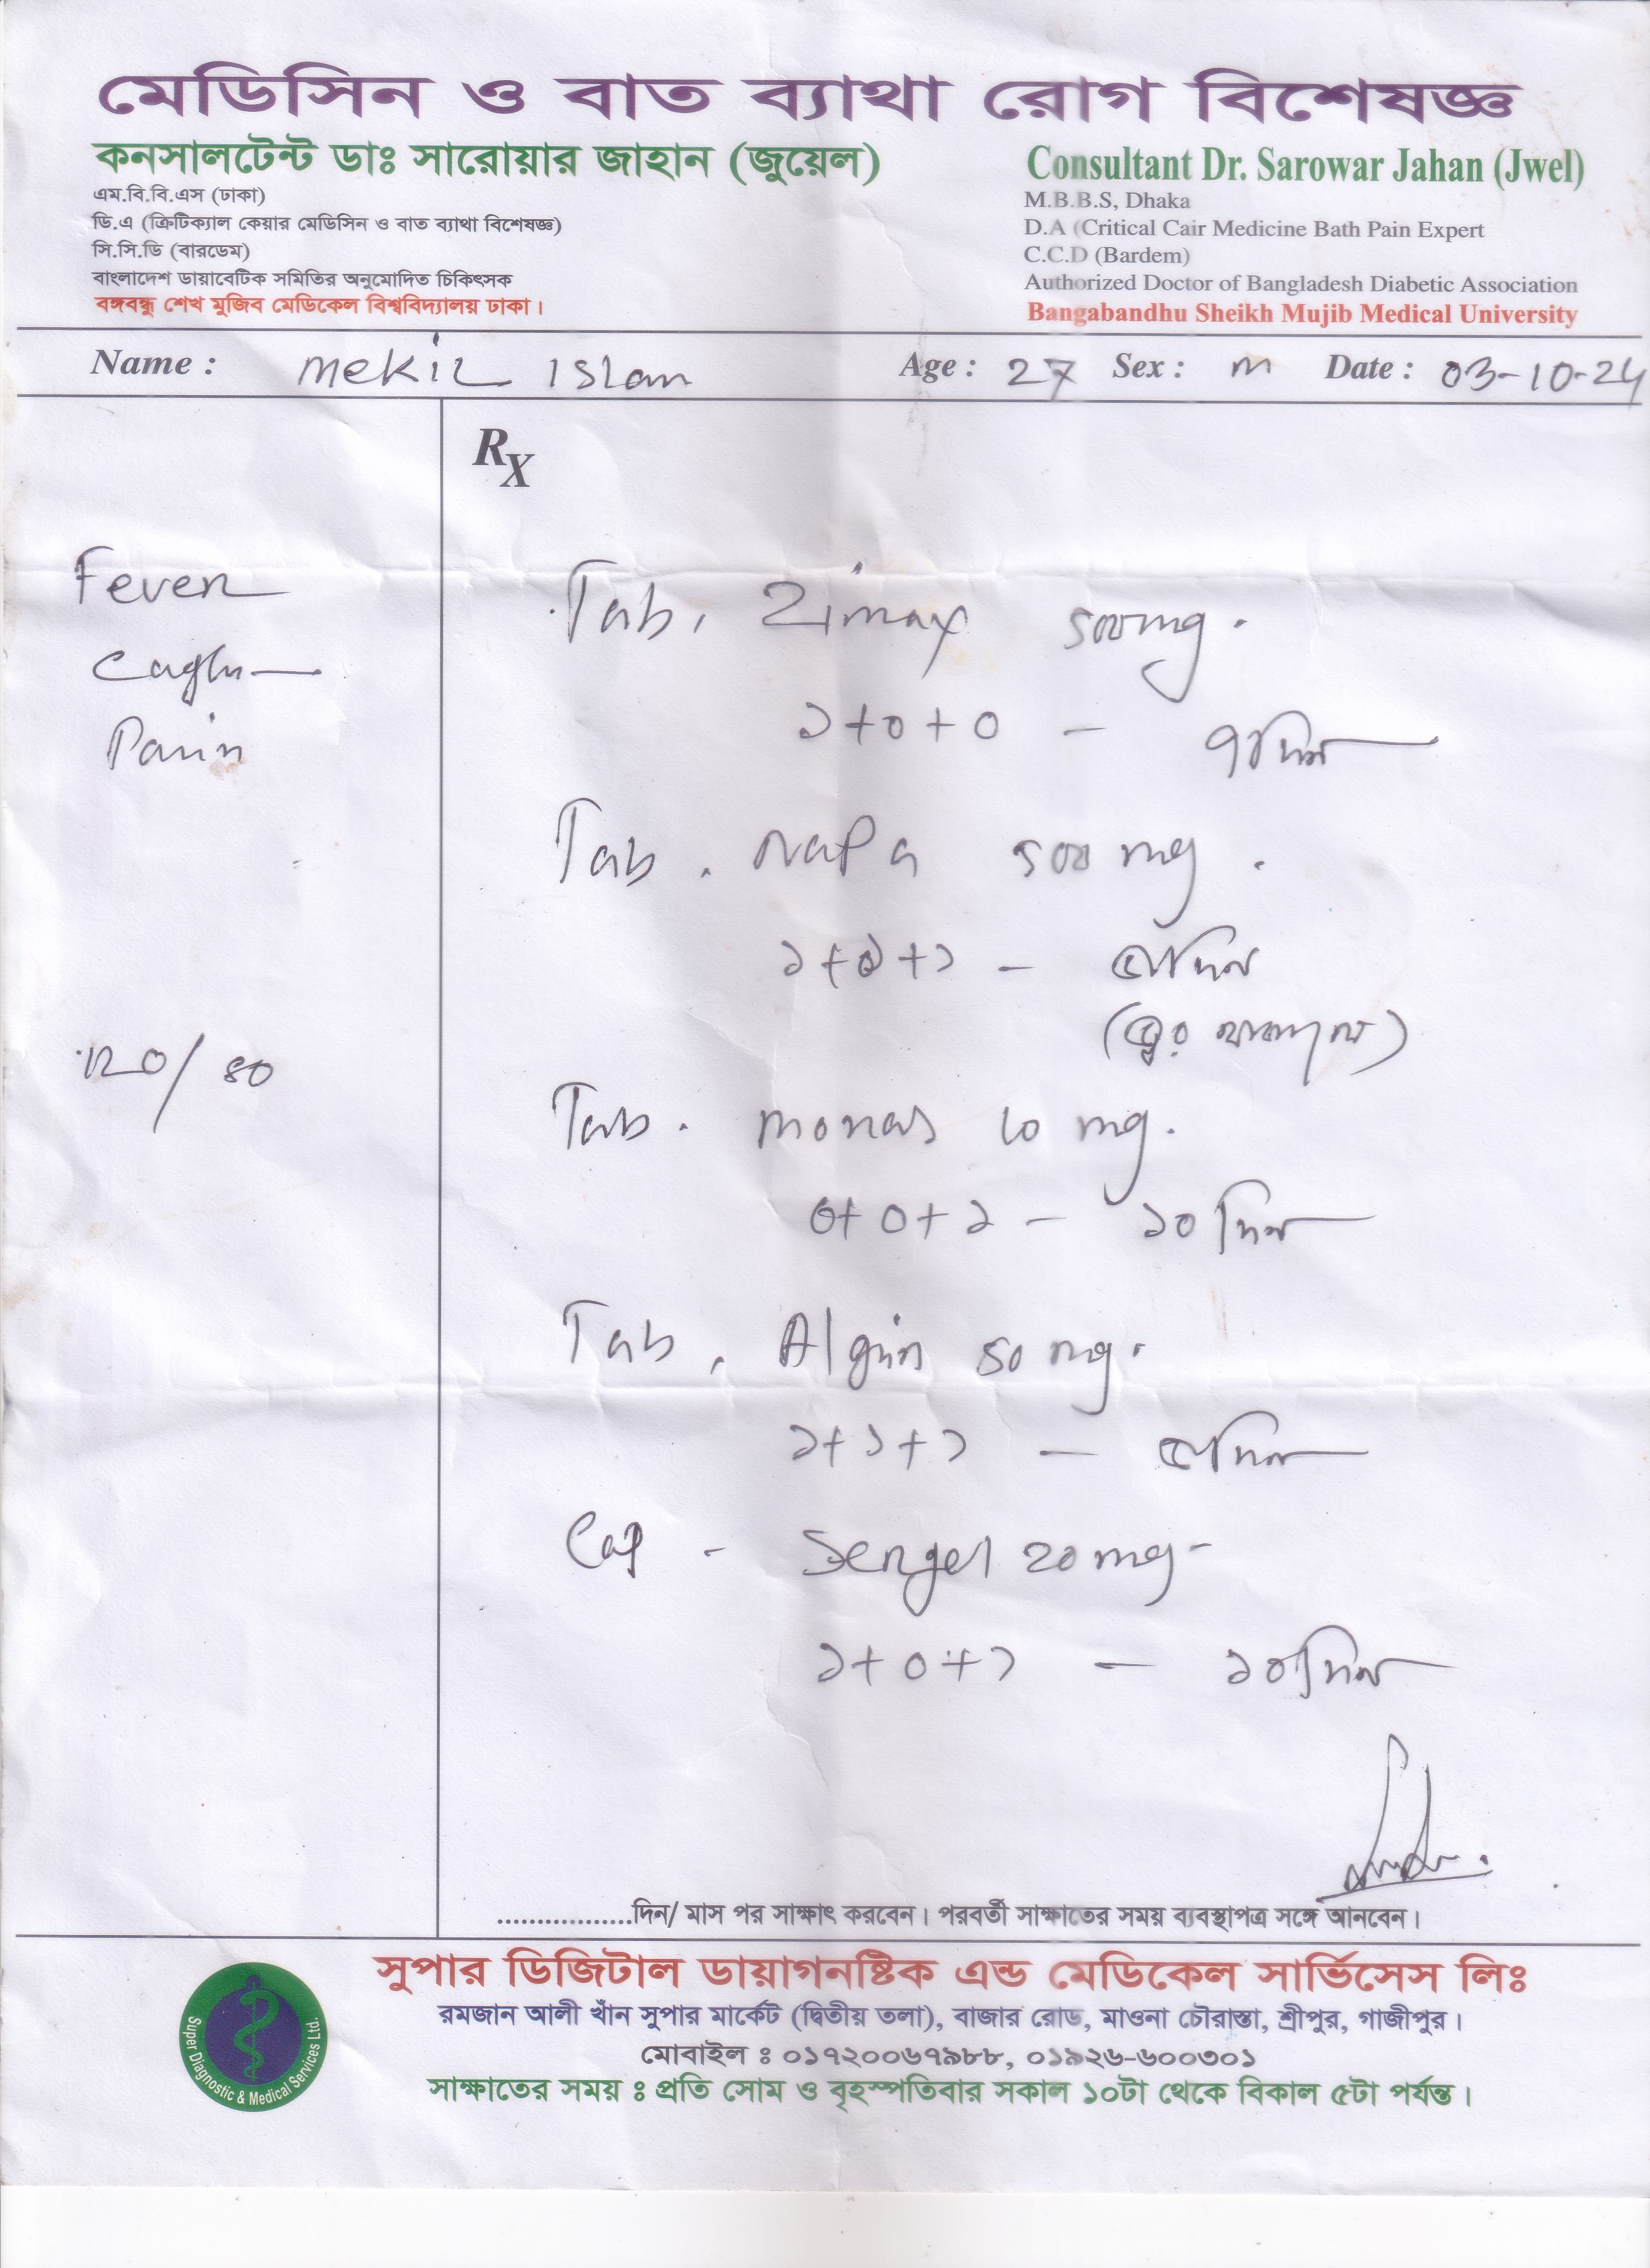 মেডিসিন ও বাত ব্যাথা রোগ বিশেষজ্ঞ
কনসালটেন্ট ডাঃ সারোয়ার জাহান (জুয়েল)
এম.বি.বি.এস (ঢাকা)
ডি.এ (ক্রিটিক্যাল কেয়ার মেডিসিন ও বাত ব্যাথা বিশেষজ্ঞ)
সি.সি.ডি (বারডেম)
বাংলাদেশ ডায়াবেটিক সমিতির অনুমোদিত চিকিৎসক
বঙ্গবন্ধু শেখ মুজিব মেডিকেল বিশ্ববিদ্যালয় ঢাকা।
Consultant Dr. Sarowar Jahan (Jwel)
M.B.B.S, Dhaka
D.A (Critical Cair Medicine Bath Pain Expert
C.C.D (Bardem)
Authorized Doctor of Bangladesh Diabetic Association
Bangabandhu Sheikh Mujib Medical University
Name : Mekil Islam Age : 27 Sex : M Date : 03-10-24
Fever
Pain
120/80
Rx
Tab. Zimax 500mg.
১+০+০ – ৭দিন
Tab. Napa 500 mg.
১+১+১ – ৫দিন
(জ্বর থাকলে)
Tab. Monas 10 mg.
০+০+১ – ১০ দিন
Tab. Algin 50 mg.
১+১+১ – ৫দিন
Cap - Sergel 20 mg-
১+০+১ – ১০দিন
.................দিন/ মাস পর সাক্ষাৎ করবেন। পরবর্তী সাক্ষাতের সময় ব্যবস্থাপত্র সঙ্গে আনবেন।
সুপার ডিজিটাল ডায়াগনষ্টিক এন্ড মেডিকেল সার্ভিসেস লিঃ
রমজান আলী খাঁন সুপার মার্কেট (দ্বিতীয় তলা), বাজার রোড, মাওনা চৌরাস্তা, শ্রীপুর, গাজীপুর।
মোবাইল ঃ ০১৭২০০৬৭৯৮৮, ০১৯২৬-৬০০৩০১
সাক্ষাতের সময় ঃ প্রতি সোম ও বৃহস্পতিবার সকাল ১০টা থেকে বিকাল ৫টা পর্যন্ত।
Super Diagnostic & Medical Services Ltd.